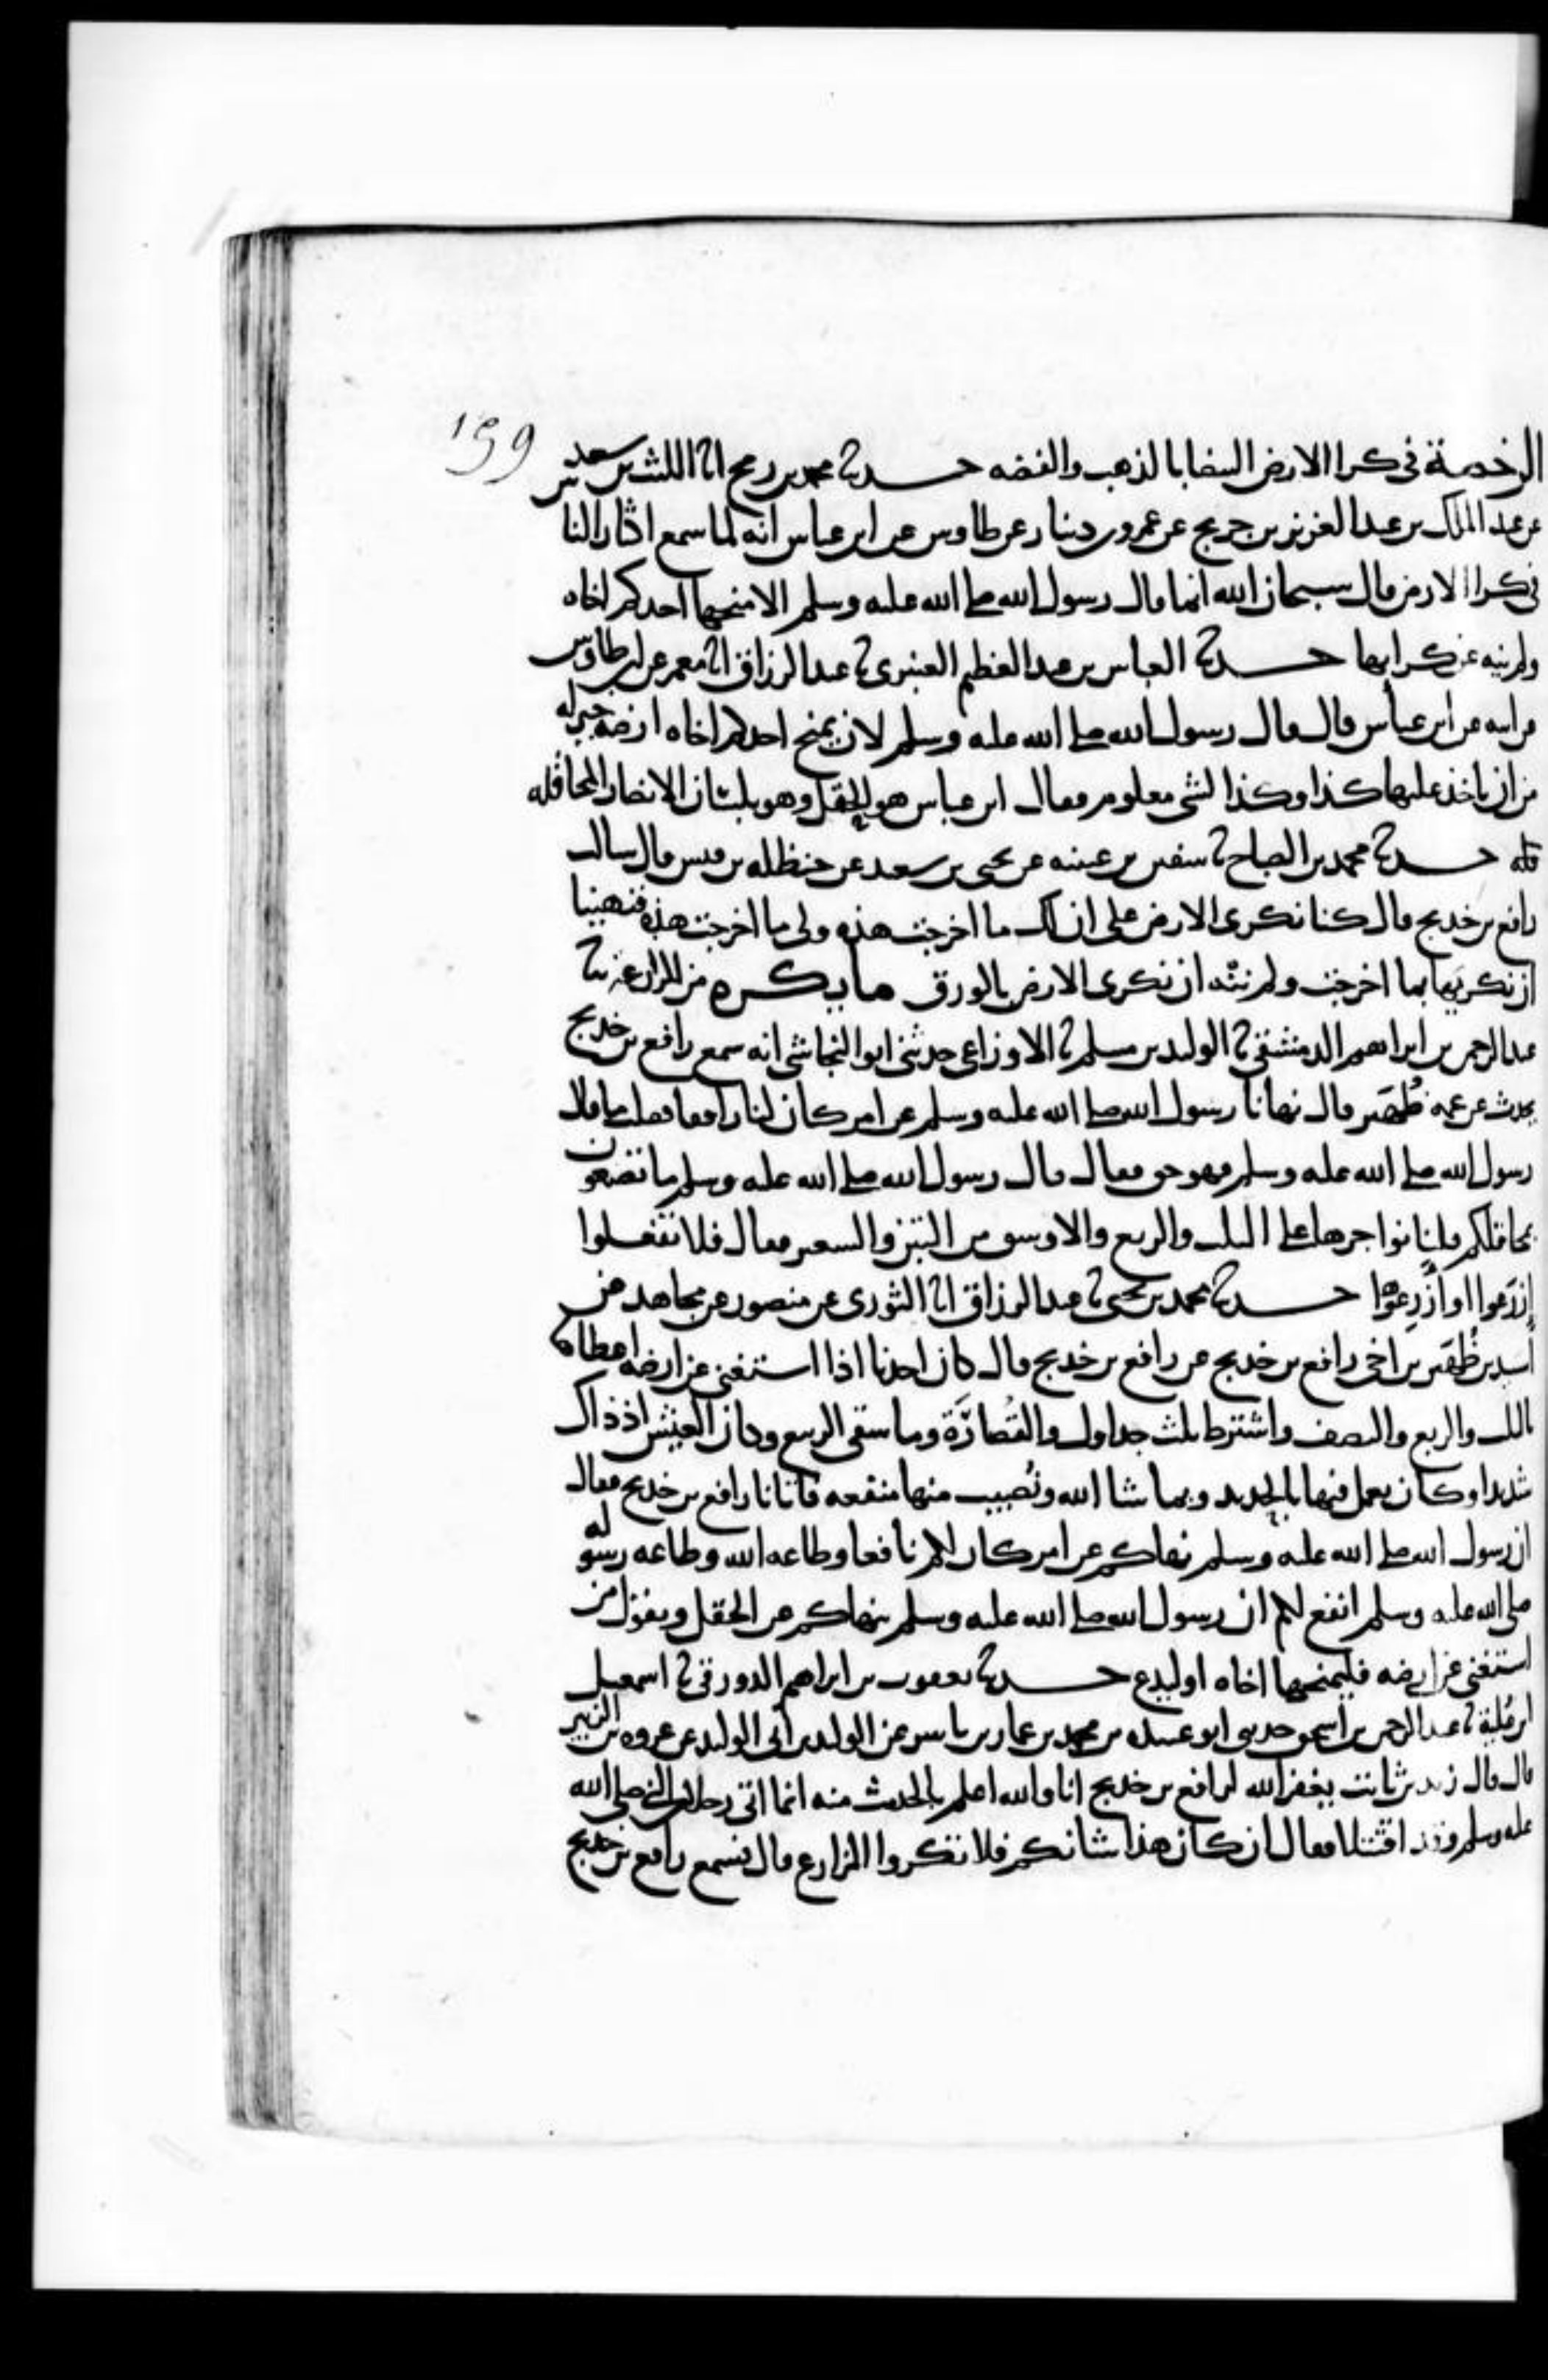 199
الرخصة في كرا الارض البيضا بالذهب والفضه حدثنا محمد بن رمح انا الليث بن سعد
عن عبد الملك بن عبد العزيز بن جريج عن عمرو بن دينار عن طاوس عن ابن عباس انه لما سمع اكثار الناس
في كرا الارض قال سبحان الله انما قال رسول الله صلى الله عليه وسلم الا منحها احدكم اخاه
ولم ينه عن كرايها حدثنا العباس بن عبد العظيم العنبري نا عبد الرزاق انا معمر عن ابن طاوس
عن ابيه عن ابن عباس قال قال رسول الله صلى الله عليه وسلم لان يمنح احدكم اخاه ارضه خير له
من ان ياخذ عليها كذا وكذا لشي معلوم فقال ابن عباس هو الحقل وهو بلسان الانصار المحاقله
قله حدثنا محمد بن الصباح نا سفين بن عيينه عن يحيى بن سعيد عن حنظله بن قيس قال سالت
رافع بن خديج قال كنا نكري الارض على ان لك ما اخرجت هذه ولي ما اخرجت هذه فنهينا
ان نكريها بما اخرجت ولم ننه ان نكري الارض بالورق ما يكره من المزارعة نا
عبد الرحمن بن ابراهيم الدمشقي نا الوليد بن مسلم نا الاوزاعي حدثني ابو النجاشي انه سمع رافع بن خديج
يحدث عن عمه ظُهَير قال نهانا رسول الله صلى الله عليه وسلم عن امر كان لنا رافعا فقلت ما قال
رسول الله صلى الله عليه وسلم فهو حق فقال قال رسول الله صلى الله عليه وسلم ما تصنعون
بمحاقلكم قلنا نواجرها على الثلث والربع والاوسق من التبن والشعير فقال فلا تفعلوا
إزرَعوا او أزرِعُوها حدثنا محمد بن يحيى نا عبد الرزاق انا الثوري عن منصور عن مجاهد عن
أسيد بن ظُهَير بن اخي رافع بن خديج عن رافع بن خديج قال كان احدنا اذا استغنى عن ارضه اعطاها
بالثلث والربع والنصف واشترط ثلث جداول والقُصارَة وما سقى الربيع وكان العيش اذ ذاك
شديدا وكان يعمل فيها بالحديد وبما شا الله ونُصيب منها منفعه فاتانا رافع بن خديج فقال
ان رسول الله صلى الله عليه وسلم نهاكم عن امر كان لكم نافعا وطاعه الله وطاعه رسوله
صلى الله عليه وسلم انفع لكم ان رسول الله صلى الله عليه وسلم ينهاكم عن الحقل ويقول من
استغنى عن ارضه فليمنحها اخاه او ليدع حدثنا يعقوب بن ابراهيم الدورقي نا اسمعيل
ابن عُلية نا عبد الرحمن بن اسحق حدثني ابو عبيده بن محمد بن عمار بن ياسر عن الوليد بن ابي الوليد عن عروه بن الزبير
قال قال زيد بن ثابت يغفر الله لرافع بن خديج انا والله اعلم بالحديث منه انما اتى رجلان النبي صلى الله
عليه وسلم وقد اقتتلا فقال ان كان هذا شانكم فلا تكروا المزارع قال فسمع رافع بن خديج